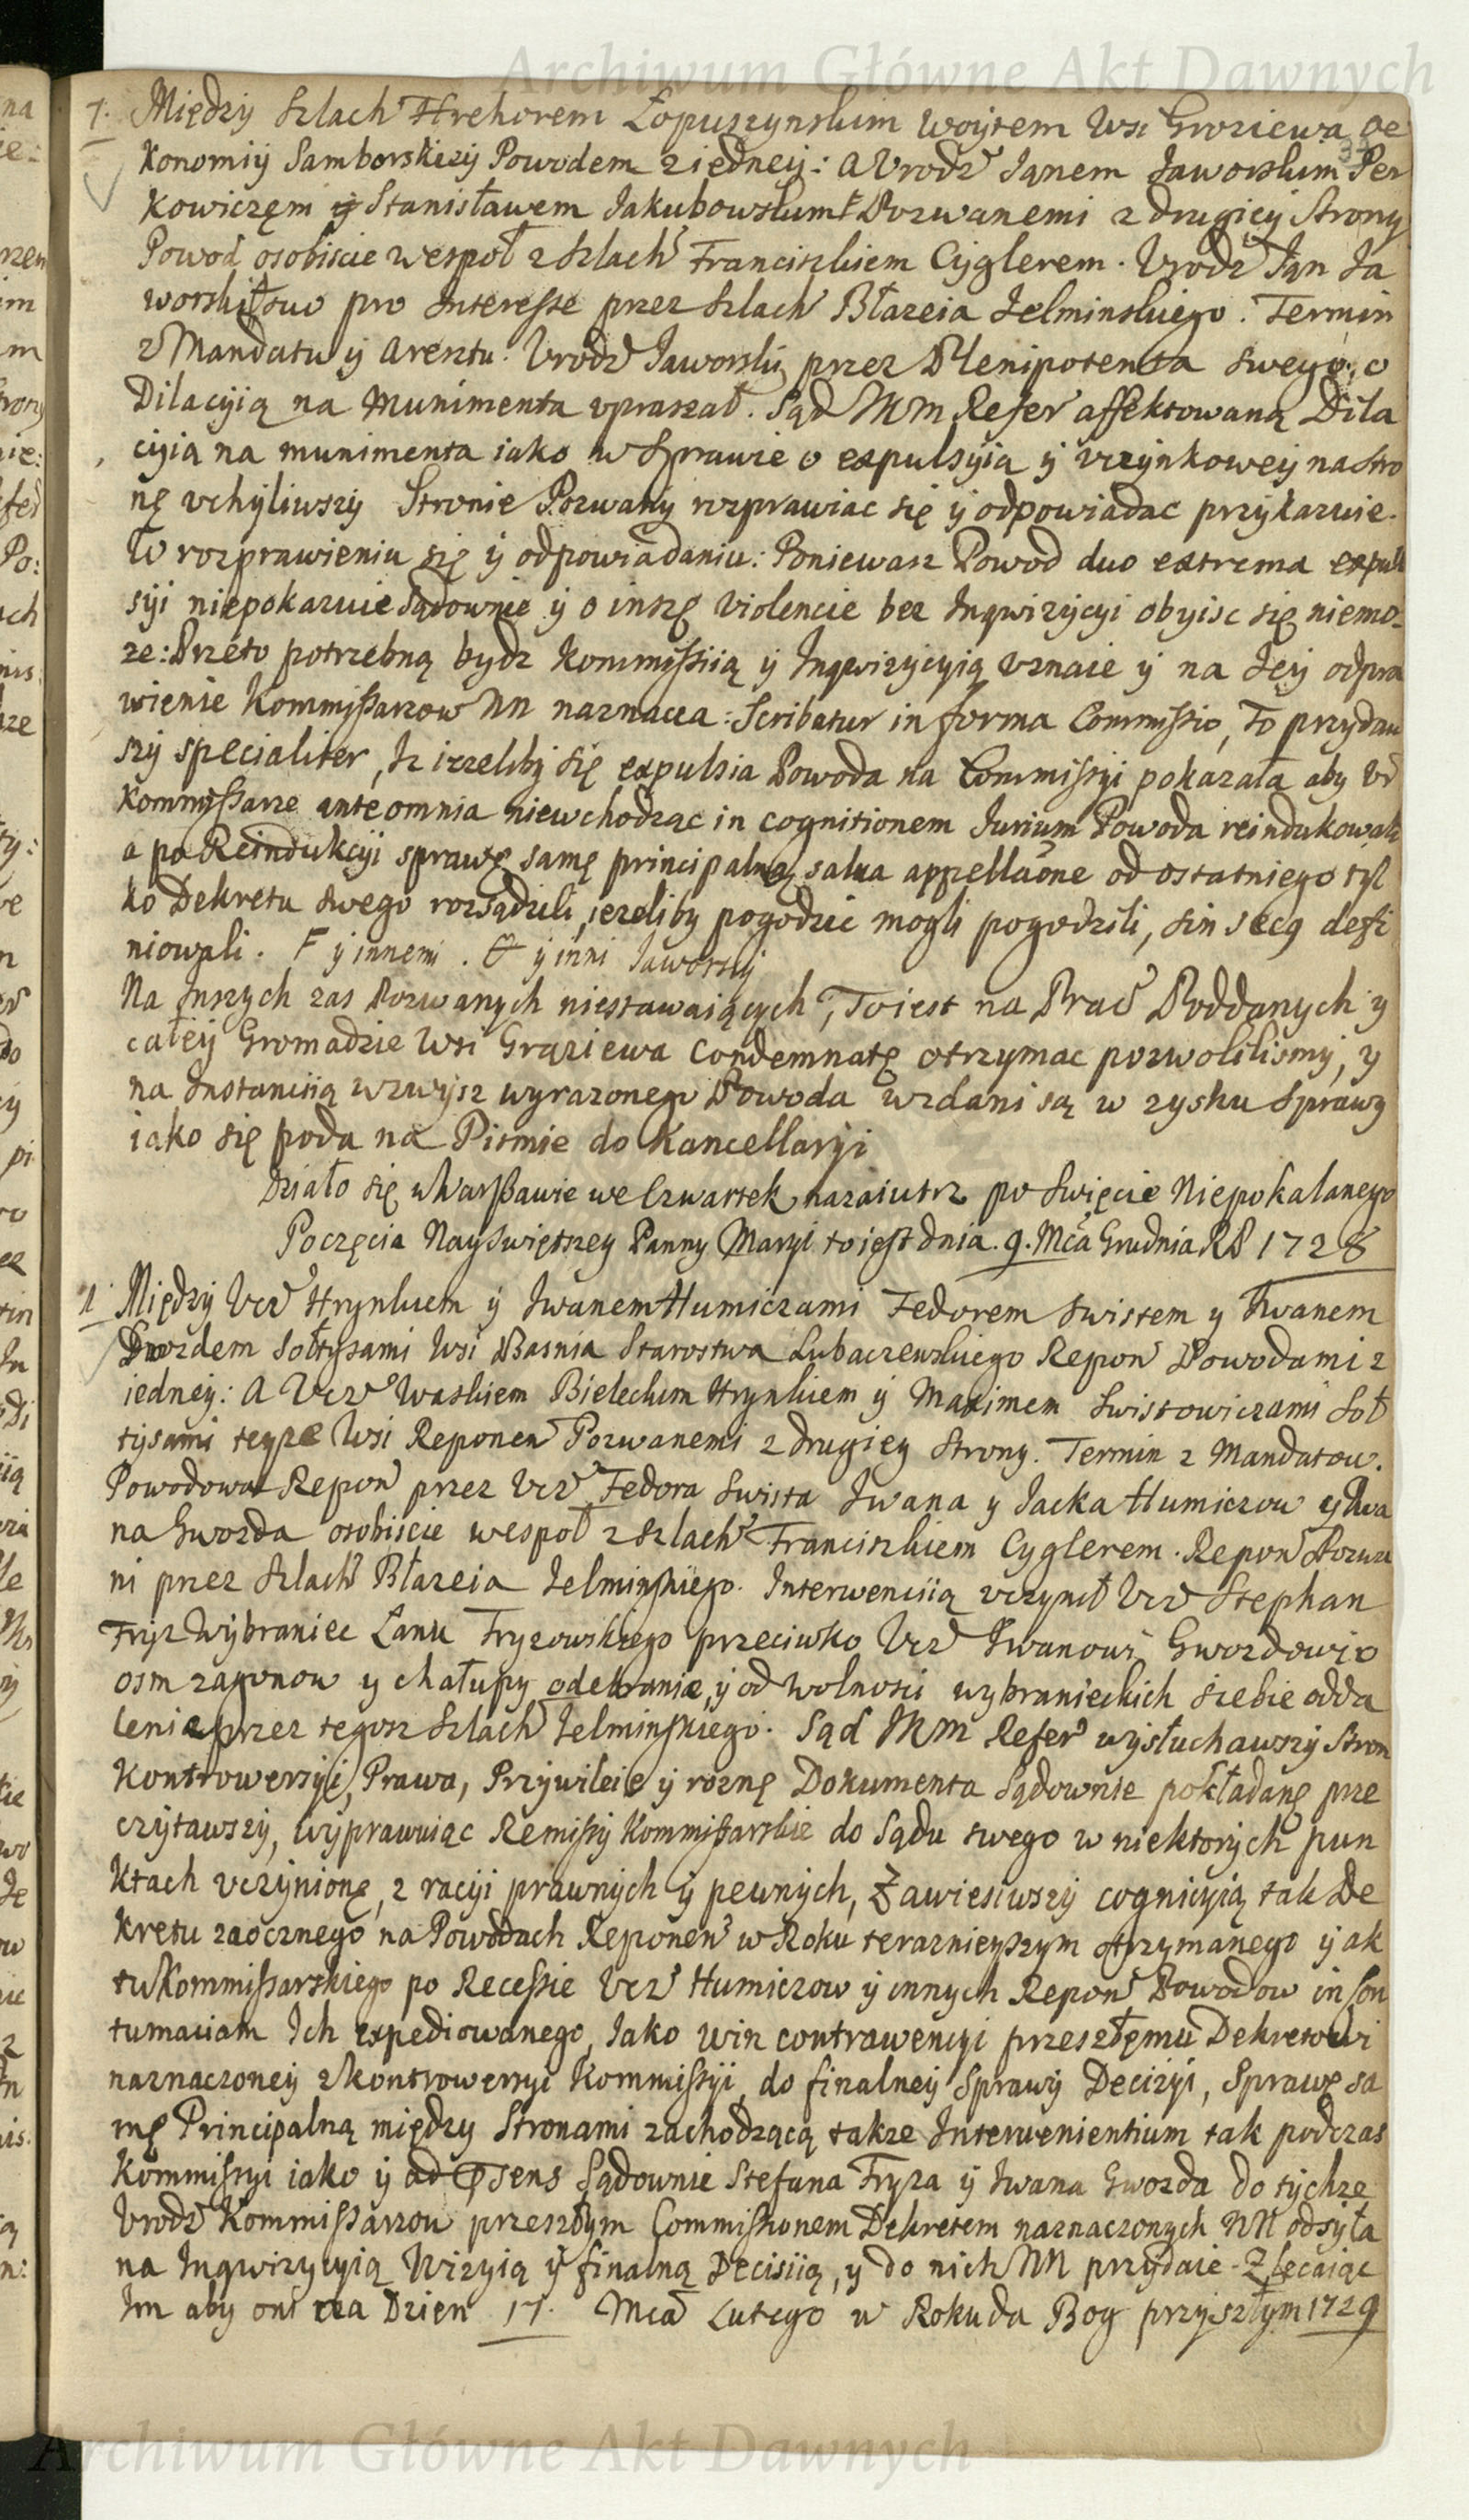 Archiwum Główne Akt Dawnych
7. Między Szlach Hrehorem Łopuszynskim Woytem Wsi Groziewa Oe
konomiÿ Samborskieÿ Powodem z iedneÿ: a Vrodz Janem Jaworskim Per
kowiczęm ÿ Stanisławem Jakubowskim F Pozwanemi z drugieÿ Strony
Powod osobiscie wespoł z Szlach Franciszkiem Cyglerem. Vrodz Jan Ja
worski suo pro Interesse przez Szlach Błazeia Jelminskiego. Termin
z Mandatu ÿ Aresztu. Vrodz Jaworski przez Plenipotenta swego, o
Dilacyią na Munimenta vpraszał. Sąd NM Refer affektowaną Dila
cyią na munimenta iako w Sprawie o expulsyią ÿ vczynkoweÿ na stro
nę vchÿliwszÿ Stronie Pozwanÿ rozprawiac się ÿ odpowiadac przykazuie.
W rozprawieniu się ÿ odpowiadaniu: Poniewasz Powod duo extrema expul
syi niepokazuie Sądownie ÿ o inszę violencie bez Inqwizycyi obyisc się niemo-
ze: Przeto potrzebną bydz Kommissiią ÿ Inqwizycyią vznaie ÿ na Jeÿ odpra
wienie Kommissarzow NN naznacza: Scribatur in forma Commissio, To przydaw
szÿ specialiter, Iz iezeliby się expulsia Powoda na Commissyi pokazała aby Vr
Kommissarze ante omnia niewchodząc in cognitionem Jurium Powoda reindukowali
a po Reindukcyi sprawę samę principalną salva appellaone od ostatniego tyl
ko Dekretu swego rozsądzili, iezeliby pogodzic mogli pogodzili, sin secq defi
niowali. F ÿ innemi. & ÿ inni Jaworscÿ
Na Inszych zas Pozwanych niestawaiących, To iest na Prac Poddanych ÿ
całeÿ Gromadzie Wsi Groziewa Condemnatę otrzymac pozwolilismÿ, ÿ
na Instanciią wzwysz wyrazonego Powoda wzdani są w zysku Sprawy
iako się poda na Pismie do Kancellaryi
Działo się w Warszawie we Czwartek nazaiutrz po Swięcie Niepokalanego
Poczęcia Nayswiętszey Panny Maryi to iest dnia. 9. Mca Grudnia RP 1728
1 Między Vcz Hrynkiem ÿ Iwanem Humiczami Fedorem Swistem y Iwanem
Gwozdem Sołtysami Wsi Basnia Starostwa Lubaczewskiego Repon Powodami z
iedneÿ: A Vcz Waskiem Bieleckim Hrynkiem ÿ Maximem Swistowiczami Soł
tysami teyze Wsi Reponen Pozwanemi z drugiey Strony. Termin z Mandatow.
Powodowa Repon przez Vcz Fedora Swista Iwana y Jacka Humiczow y Iwa
na Gwozda osobiscie wespoł z Szlach Franciszkiem Cyglerem. Repon Pozwa
ni przez Szlach Błazeia Jelminskiego. Interwenciią vczynił Vcz Stephan
Fryz Wybraniec Łanu Fryzowskiego przeciwko Vcz Iwanowi Gwozdowi o
osm zagonow y chałupy odebranie, ÿ od wolnosci wybranieckich siebie odda
lenie przez tegosz Szlach Jelminskiego. Sąd NM Refer wysłuchawszÿ Stron
Kontrowersyi, Prawa, Przywileie ÿ roznę Dokumenta Sądownie pokładanę prze
czytawszÿ, wyprawuiąc Remissÿ Kommissarskie do Sądu swego w niektorych pun
ktach vczynionę, z racyi prawnych ÿ pewnych, Zawiesiwszÿ cognicyią tak De
kretu zaocznego na Powodach Reponen w Roku terazniejszym otrzymanego ÿ ak
tu Kommissarskiego po Recessie Vcz Humiczow ÿ innych Repon Powodow in Con
tumaciam Ich expediowanego, Jako win contrawencyi przeszłemu Dekretowi
naznaczoneÿ z kontrowersyi Kommissyi, do finalneÿ Sprawÿ Decizyi, Sprawę sa
mę Principalną między Stronami zachodzącą takze Interwenientium tak podczas
Kommissyi iako ÿ ad Psens Sądownie Stefana Fryza ÿ Iwana Gwozda do tychze
Vrodz Kommissarzow przeszłym Commissionem Dekretem naznaczonych NN odsyła
na Inqwizycyią Wizyią ÿ finalną Decisiią, y do nich NN przydaie. Zlecaiąc
Im aby oni na Dzien 17. Mca Lutego w Roku da Bog przyszłym 1729
Archiwum Główne Akt Dawnych